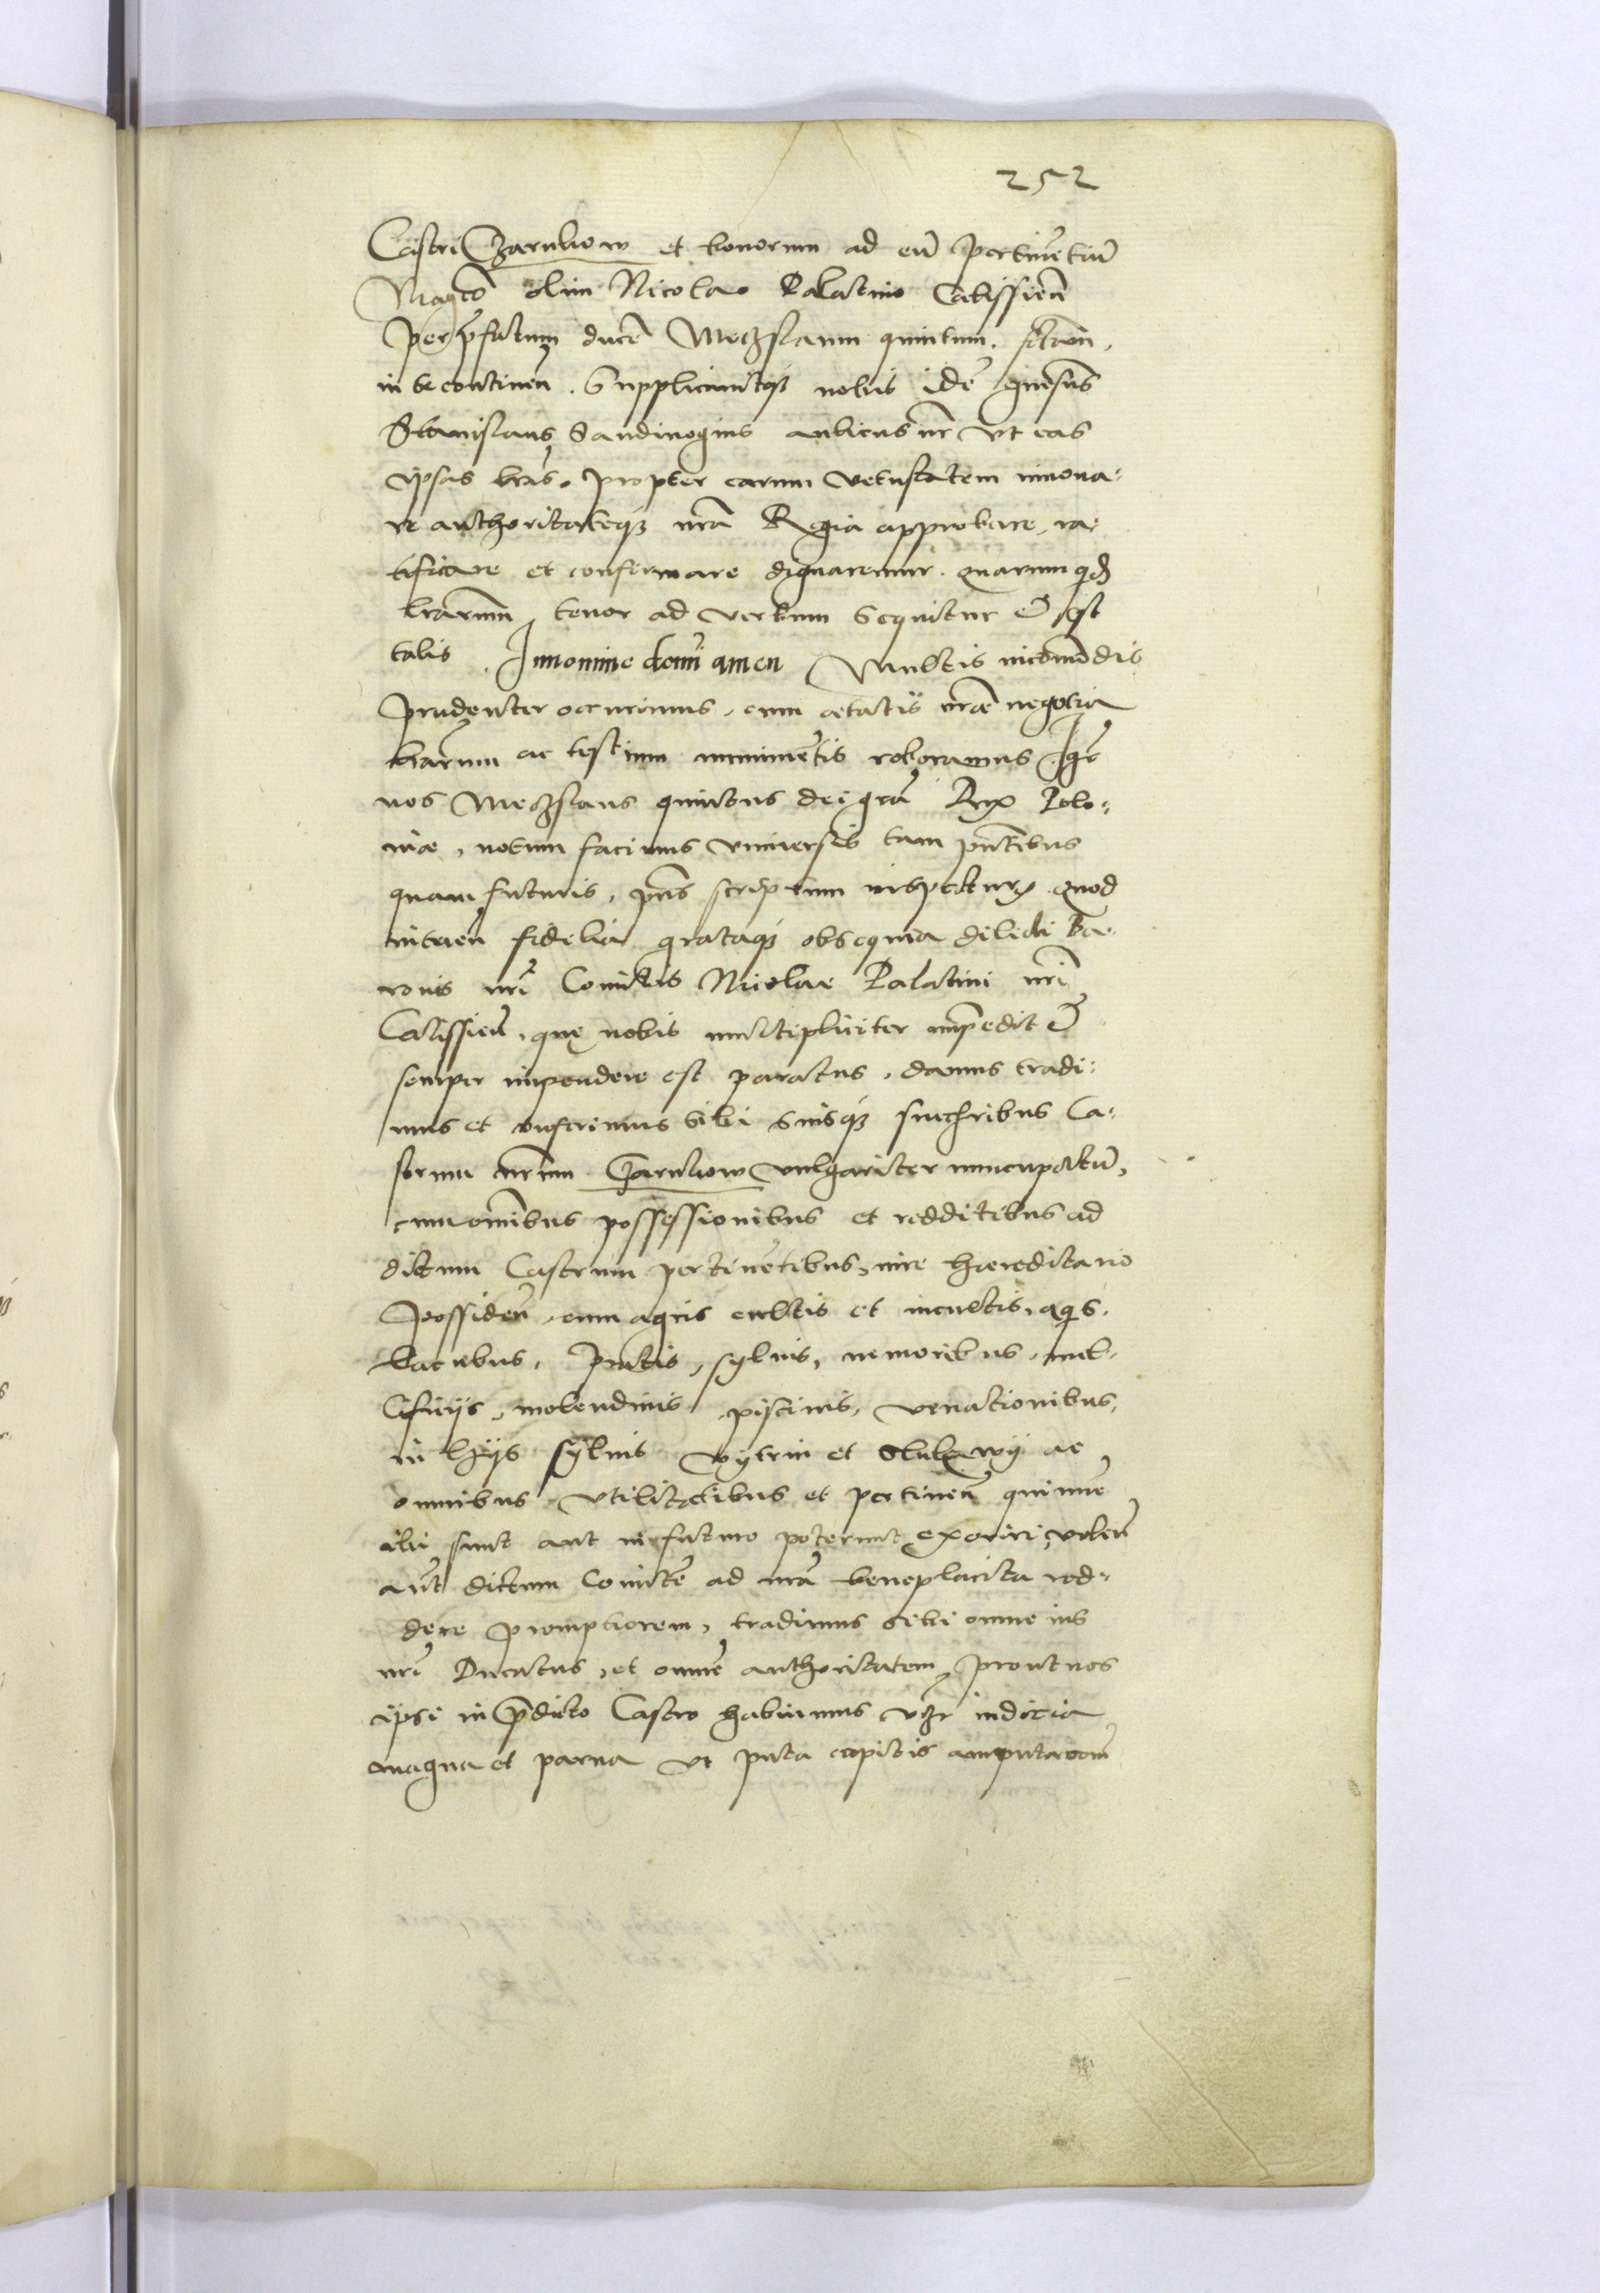 252
Castri Czarnkow et bonorum ad eū pertinētiū
Magco olim Nicolao Palatino Calissieñ
per pfatum ducē Meczslaum quintum
in se contineñ. Supplicauitqȝ nobis idē gnosus
Stanislaus Sandiuogius aulicus nr̄ vt eas
ipsas lr̄as propter earum vetustatem innoua-
re authoritateqȝ nrā Regia approbare, ra-
tificare et confirmare dignaremur. quarum qd
lrarum tenor ad verbum sequitur & est
talis. In nomine domī amen Multis incomodis
prudenter occurrimus, cum aetatis nrae negotia
lrarum ac testium munimētis roboramus Igr
nos Meczslaus quintus dei grā Dux Polo-
niae, notum facimus vniuersis tam pntibus
quam futuris, pns scriptum inspectur. quod
intueñ fidelia grataqȝ obsequia dilecti Ba-
ronis nrī Comitis Nicolae Palatini nrī
Calissieñ, quę nobis multipliciter impēdit &
semper impendere est paratus, damus tradi-
mus et conferimus sibi suisqȝ succribus Ca-
strum nrūm Czarnkow vulgariter nuncupatū,
cum omībus possessionibus et redditibus ad
dictum Castrum pertinētibus, iure haereditario
possideñ, cum agris cultis et incultis, aqis,
lacubus, pratis, syluis, nemoribus, mel-
lificijs, molendinis, piscinis, venationibus,
in hijs syluis et ac
omnibus vtilitatibus et pertineñ qui nūc
ibi sunt aut in futuro poterunt exoriri, voleñ
aūt dictum Comitē ad nrā beneplacita red-
dere promptiorem, tradimus sibi omne ius
nrī Ducatus, et omnē authoritatem, prout nos
ipsi in pdicto Castro habuimus vzr iudicia
magna et parua vt puta capitis amputacoem